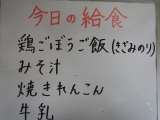 今日の給食
鶏ごぼうご飯(きざみのり)
みそ汁
焼きれんこん
牛乳